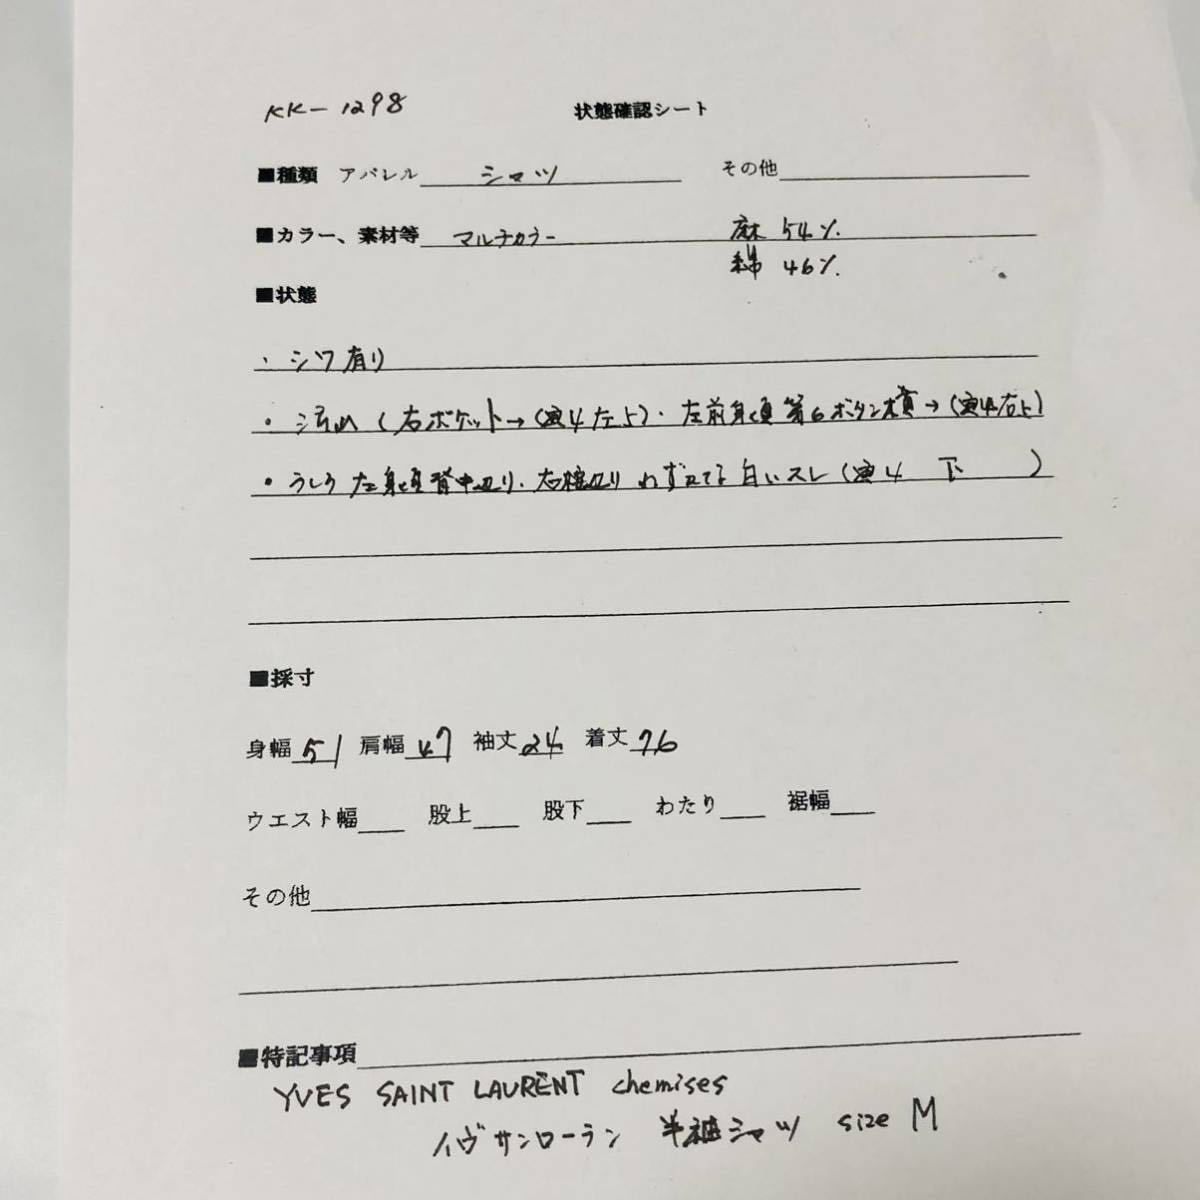 KK-1298 状態確認シート
■種類 アパレル シャツ その他
■カラー、素材等 マルチカラー 麻 54%
綿 46%
■状態
・シワ有り
・汚れ(右ポケット→(画4左上)・左前身頃第6ボタン横→(画4右上)
・うしろ左身頃背中辺り、右裾辺りわずかな白いスレ(画4 下 )
■採寸
身幅 51 肩幅 47 袖丈 24 着丈 76
ウエスト幅 股上 股下 わたり 裾幅
その他
■特記事項
YVES SAINT LAURENT chemises
イヴサンローラン 半袖シャツ size M